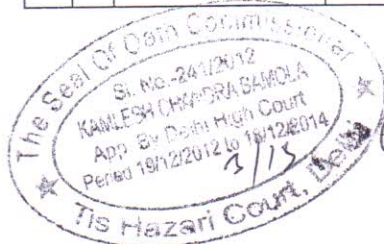 The Seal Of Oath Commissioner
Sl. No.-241/2012
KAMLESH CHANDRA BAMOLA
App. By Delhi High Court
Period 19/12/2012 to 18/12/2014
Tis Hazari Court, Delhi